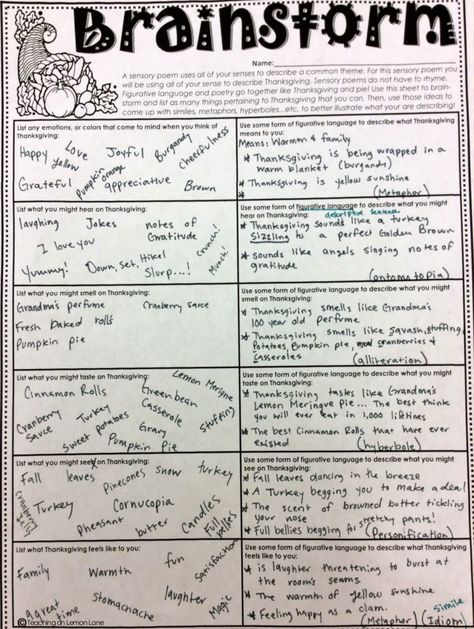 Brainstorm
Name:
A sensory poem uses all of your senses to describe a common theme. For this sensory poem you
will be using all of your sense to describe Thanksgiving. Sensory poems do not have to rhyme.
Figurative language and poetry go together like Thanksgiving and pie! Use this sheet to brain-
storm and list as many things pertaining to Thanksgiving that you can. Then, use those ideas to
come up with similes, metaphors, hyperboles...etc. to better illustrate what your are describing!
List any emotions, or colors that come to mind when you think of
Thanksgiving:
Happy Love Joyful Burgandy Cheerfulness
yellow
Grateful Pumpkin orange appreciative Brown
Use some form of figurative language to describe what Thanksgiving
means to you:
Means: Warmth & family
* Thanksgiving is being wrapped in a
warm blanket (burgandy)
* Thanksgiving is yellow sunshine
(Metaphor)
List what you might hear on Thanksgiving:
laughing Jokes notes of
Gratitude
I love you
Yummy! Down, set, Hike! Crunch!
Slurp...! Munch!
Use some form of figurative language to describe what you might
hear on Thanksgiving: descriptive sentence
* Thanksgiving sounds like a turkey
sizzling to a perfect Golden Brown
* sounds like angels singing notes of
gratitude
(ontomatopia)
List what you might smell on Thanksgiving:
Grandma's perfume Cranberry sauce
Fresh baked rolls
Pumpkin pie
Use some form of figurative language to describe what you might
smell on Thanksgiving:
* Thanksgiving smells like Grandma's
100 year old perfume
* Thanksgiving smells like squash, stuffing,
Potatoes, Pumpkin pie, cranberries &
Casseroles
(alliteration)
List what you might taste on Thanksgiving:
Lemon Merigne
Cinnamon Rolls Pie
Greenbean
Casserole
Cranberry Sauce Turkey stuffing
sweet potatoes Gravy
Pumpkin Pie
Use some form of figurative language to describe what you might
taste on Thanksgiving:
* Thanksgiving tastes like Grandma's
Lemon Meringue Pie... The best think
you will ever eat in 1,000 liftines
* The best Cinnamon Rolls that have ever
existed
(hyberbole)
List what you might see on Thanksgiving:
Fall leaves snow turkey
Pinecones
Cranberry
Turkey Cornucopia
Pheasant butter Candles
Full bellies
Use some form of figurative language to describe what you might
see on Thanksgiving:
* Fall leaves dancing in the breeze
* A Turkey begging you to make a deal
* The scent of browned butter tickling
your nose
* Full bellies begging for stretchy pants!
(Personification)
List what Thanksgiving feels like to you:
Family Warmth fun Satisfaction
Stomachache laughter Magic
A great
time
Use some form of figurative language to describe what Thanksgiving
feels like to you:
* is laughter thretening to burst at
the room's seams.
* The warmth of yellow sunshine
* Feeling happy as a clam. simile
(Metaphor) (Idiom)
©Teaching on Lemon Lane